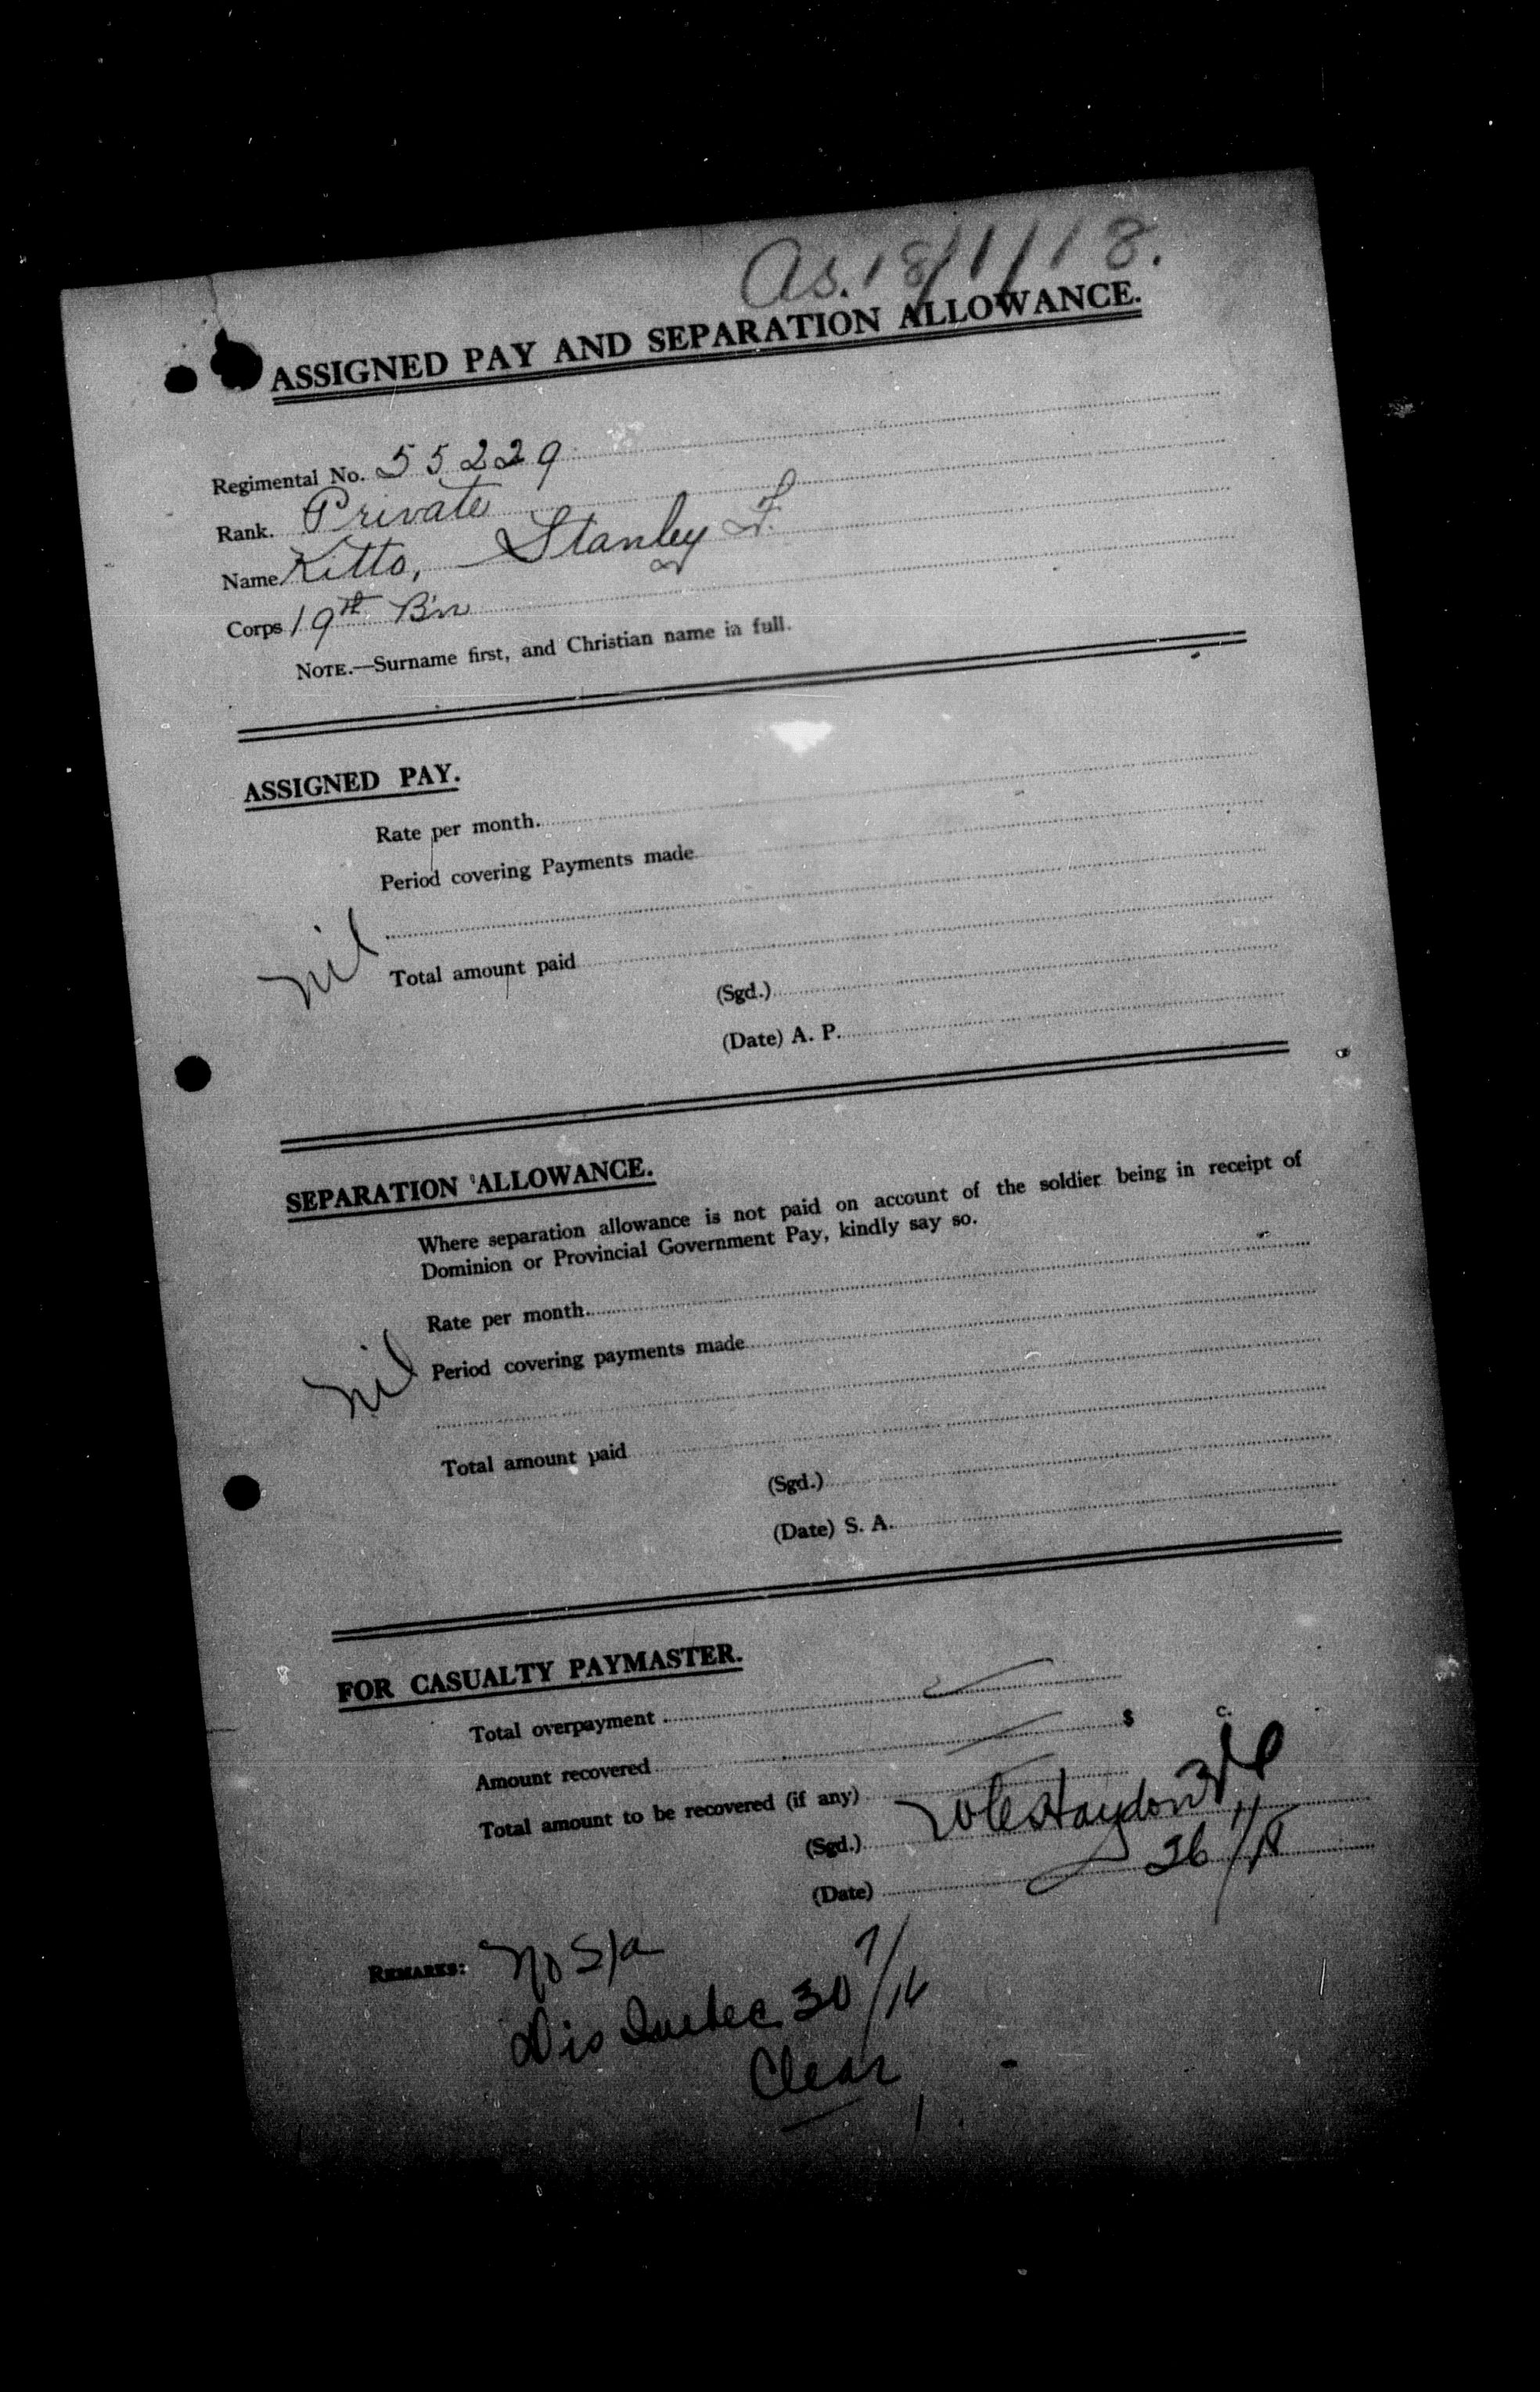 As. 18/1/18.
ASSIGNED PAY AND SEPARATION ALLOWANCE.
Regimental No. 55229
Rank. Private
Name Kitto, Stanley F.
Corps 19th B'n
NOTE.—Surname first, and Christian name in full.
ASSIGNED PAY.
Rate per month.
Period covering Payments made
nil
Total amount paid
(Sgd.)
(Date) A. P.
SEPARATION ALLOWANCE.
Where separation allowance is not paid on account of the soldier being in receipt of
Dominion or Provincial Government Pay, kindly say so.
Rate per month.
nil
Period covering payments made
Total amount paid
(Sgd.)
(Date) S. A.
FOR CASUALTY PAYMASTER.
Total overpayment
$ c.
Amount recovered
Total amount to be recovered (if any)
(Sgd.)
(Date) 26/11/18
REMARKS: No S/a
Dis Quebec 30/7/16
Clear